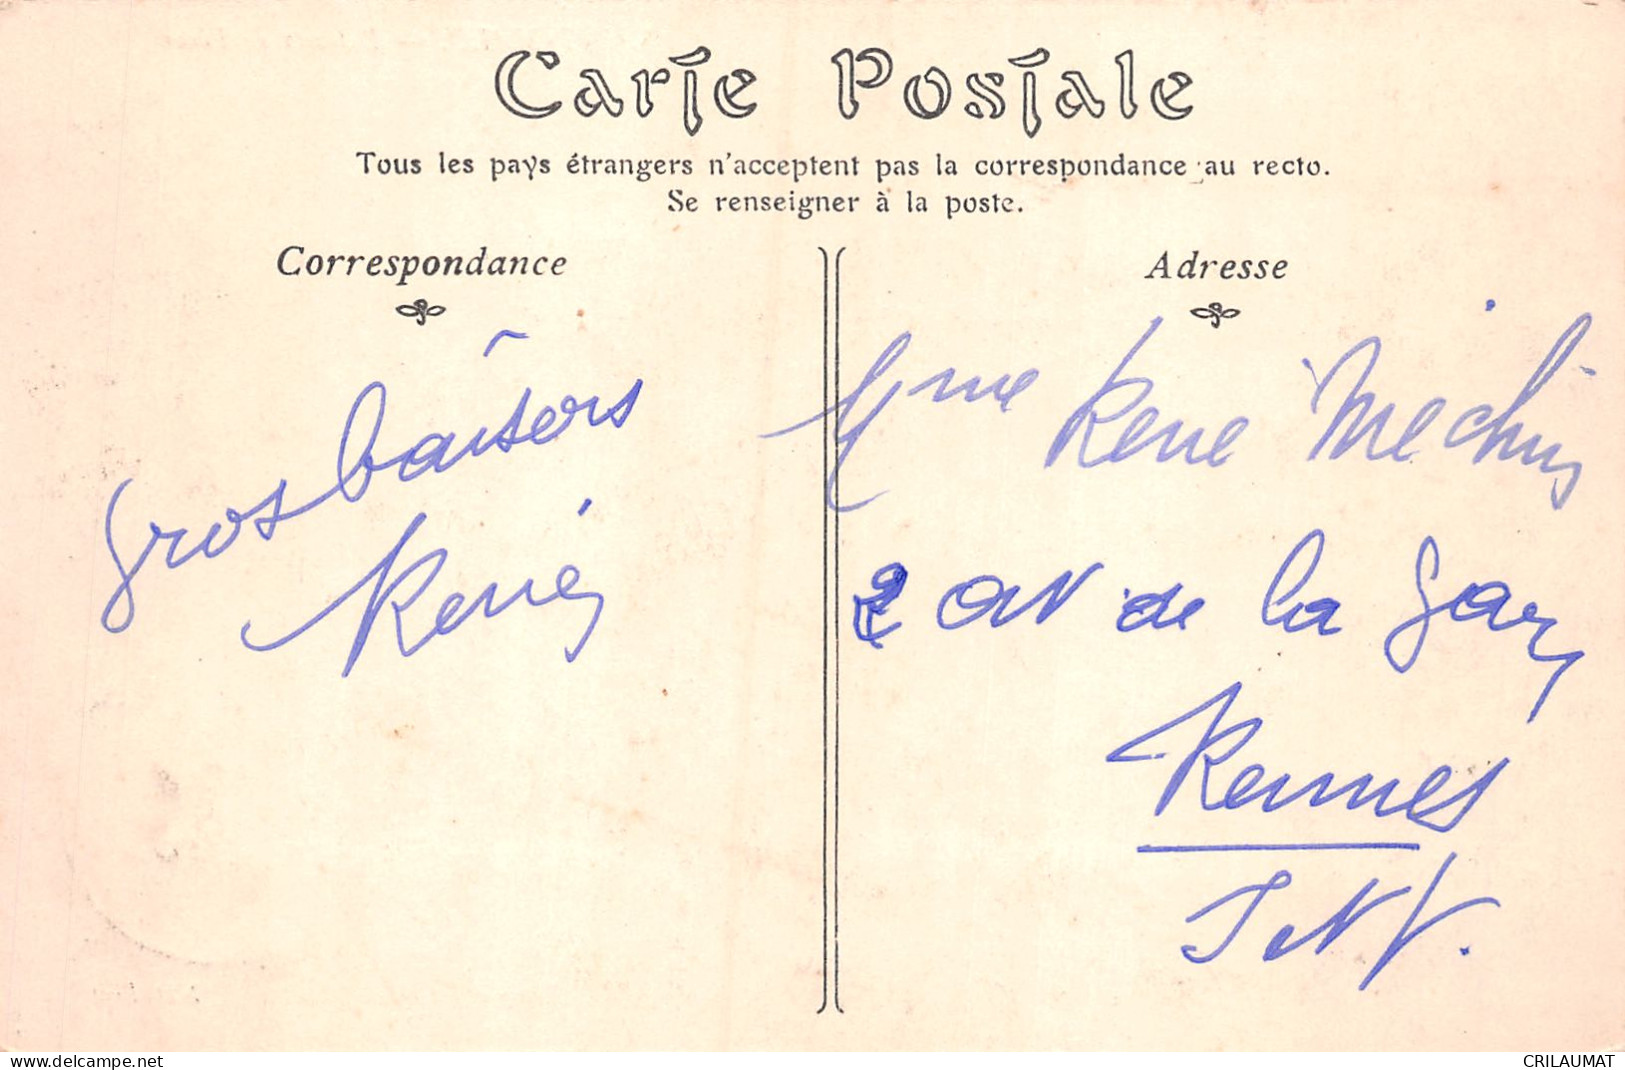 Carte Postale
Tous les pays étrangers n'acceptent pas la correspondance au recto.
Se renseigner à la poste.
Correspondance
Adresse
Gros baisers
René
Mme René Méchin
2 av de la Gare
Rennes
I et V.
www.delcampe.net
CRILAUMAT